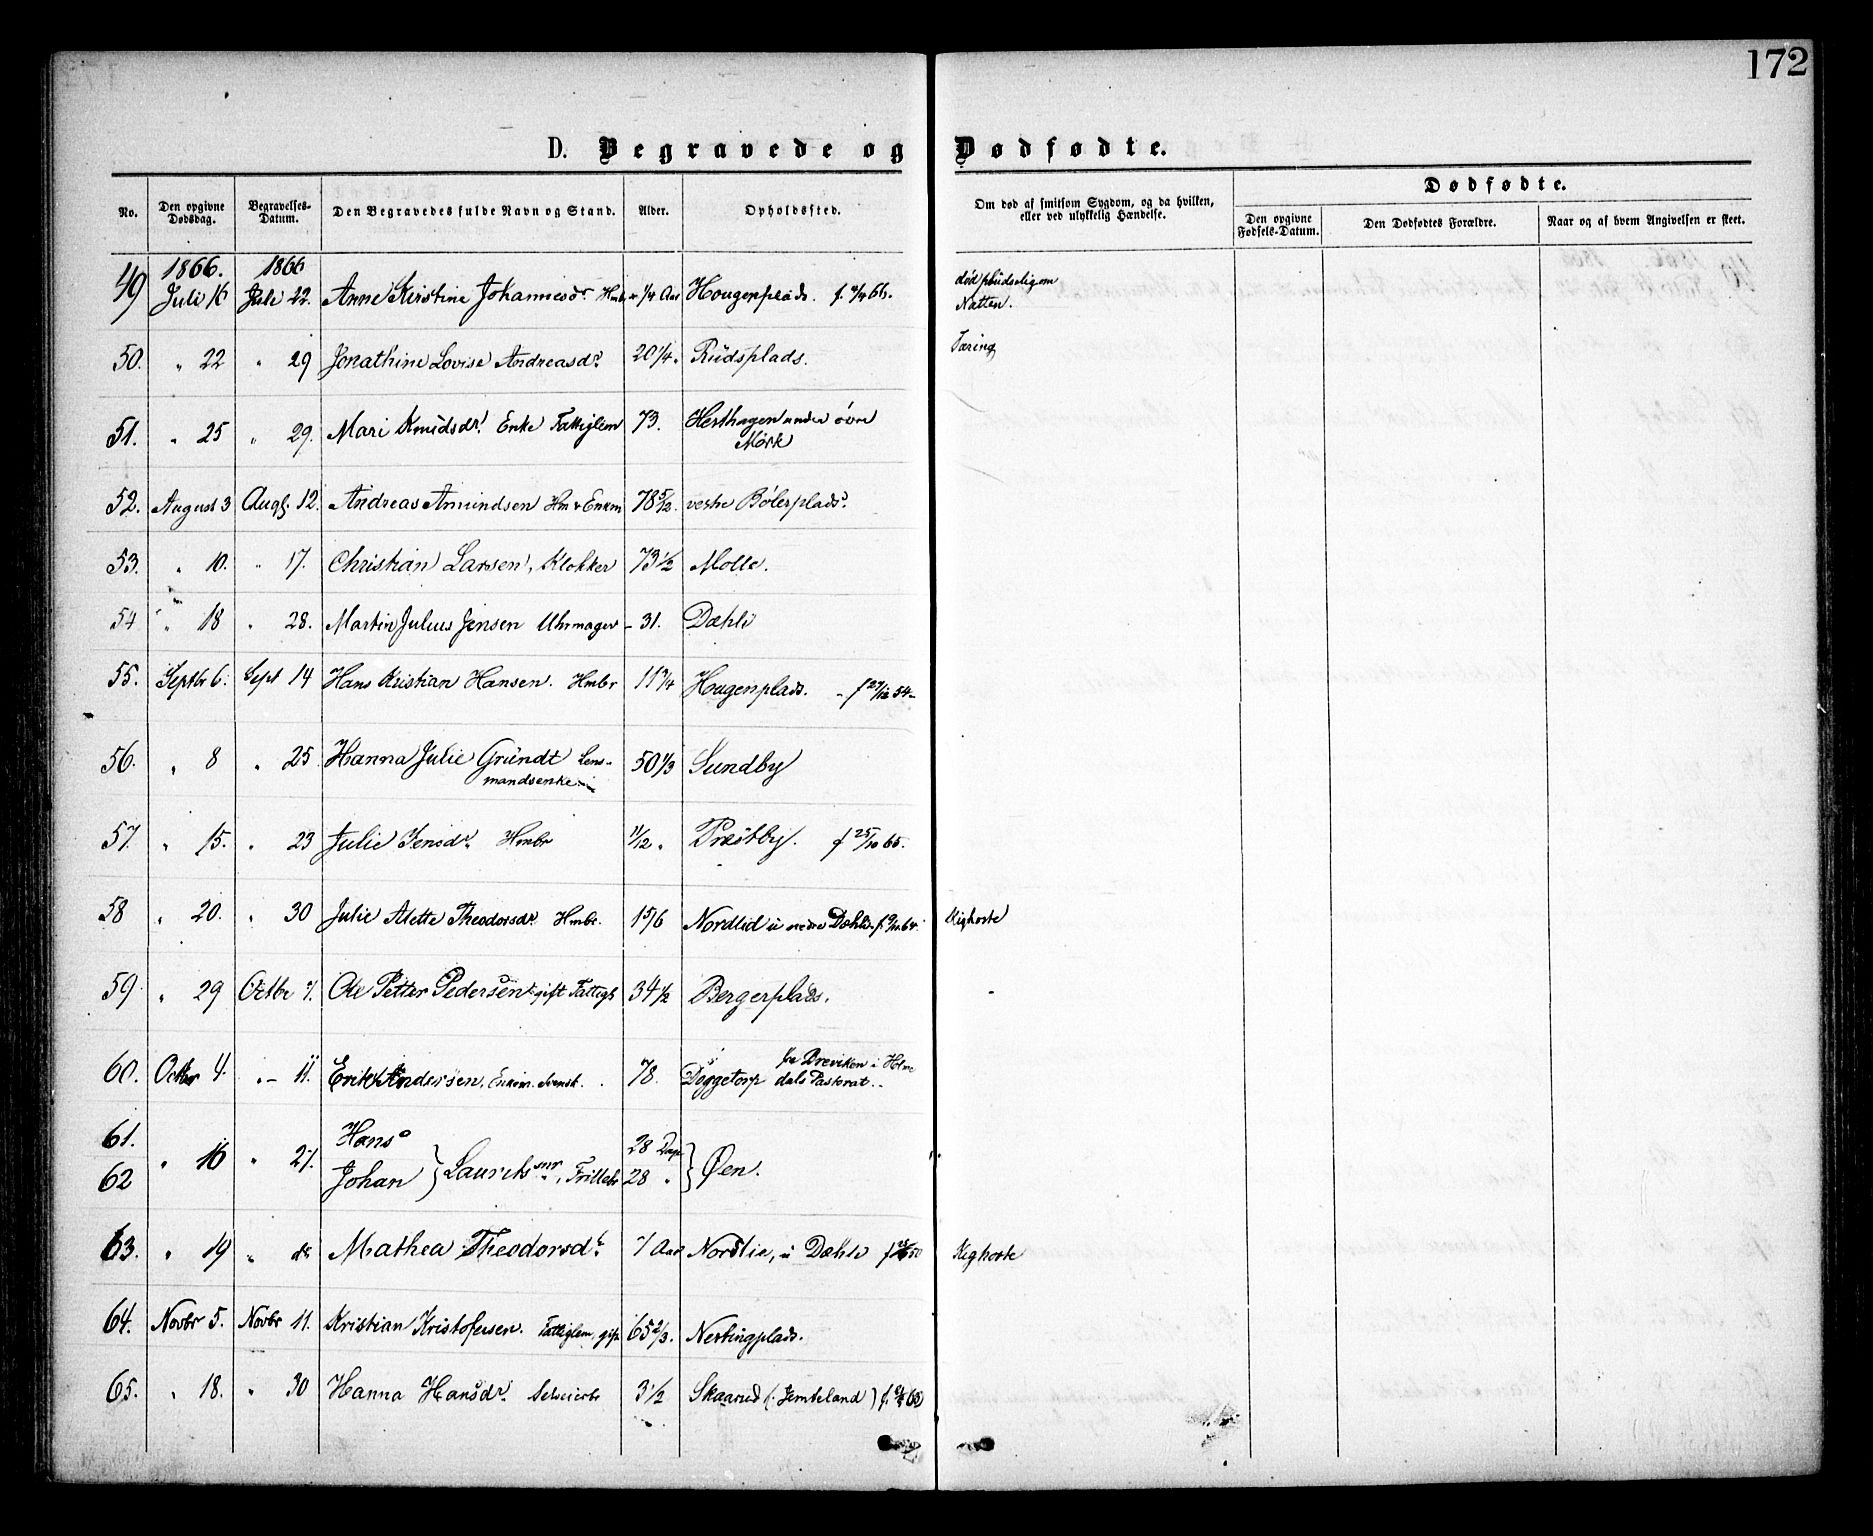 172
D. Begravede og Dødfødte.
No. Den opgivne Dødsdag. Begravelses-Datum. Den Begravedes fulde Navn og Stand. Alder. Opholdssted. Om død af smitsom Sygdom, og da hvilken, eller ved ulykkelig Hændelse. Dødfødte.
Den opgivne Fødsels-Datum. Den Dødfødtes Forældre. Naar og af hvem Angivelsen er skeet.
1866. 1866
49 Juli 16 Juli 22. Anne Kirstine Johannesdr. Hmbr 1/4 Aar Hougenplads. død pludselig om Natten.
50. " 22 " 29 Jonathine Lovise Andreasdr 20 1/4 " Rudsplads. Tæring
51. " 25 " 29. Mari Knudsdr. Enke Fattiglem 73. Hesthagen under øvre Mørk
52. August 3 Aug. 12. Andreas Amundsen Hm & Enkm 78 5/12. vestre Bølerplads.
53. " 10. " 17. Christian Larsen, Klokker 73 1/2 Molle.
54 " 18 " 28. Martin Julius Jensen Uhrmager 31. Dæhli
55. Septbr 6. Sept 14 Hans Kristian Hansen. Hmbr 11 3/4 Hougenplads. f 27/12 54
56. " 8 " 25 Hanna Julie Gründt Lensmandsenke 50 1/3 Sundby
57. " 15. " 23 Julie Jensdr. Hmbr 11/12 " Præstby. f 25/10 65.
58 " 20. " 30 Julie Alette Theodorsdr Hmbr. 1 5/6 Nordlid u nedre Dæhli Kighoste
59. " 29 Octbr 7. Ole Petter Pedersen gift Fattigl 34 1/2 Bergerplads.
60. Octbr 4. " 11. Erik Andersen. Enkem. Svensk. 78. Doggetorp fra Breviken i Holmedals Pastorat.
61. Hans 28 Dage
" 16 " 21. } Lauritssnr, Frillebr } Øen.
62 Johan 28 "
63. " 19 " do Mathea Theodorsdr. 7 Aar Nordlie, u Dæhli Kighoste
64. Novbr 5. Novbr 11. Kristian Kristofersen. Fattiglem, gift 65 2/3. Nertingplads.
65. " 18. " 30 Hanna Hansdr. 3 1/2 Skaarud (: Jemteland)